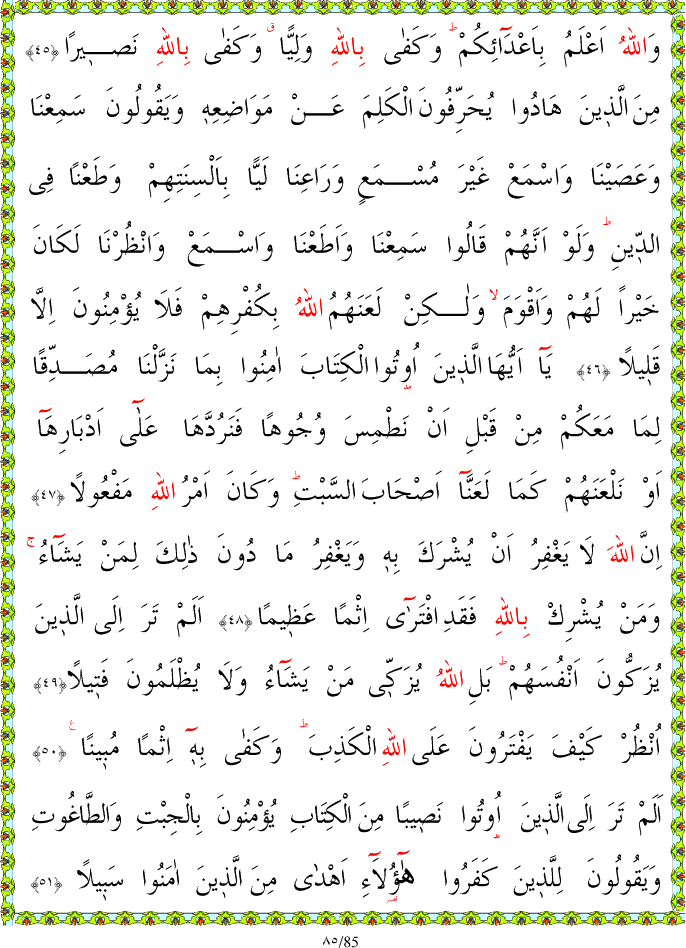 وَاللّٰهُ اَعْلَمُ بِاَعْدَٓائِكُمْۜ وَكَفٰى بِاللّٰهِ وَلِيًّاۗ وَكَفٰى بِاللّٰهِ نَصٖيرًا ﴿٤٥﴾
مِنَ الَّذٖينَ هَادُوا يُحَرِّفُونَ الْكَلِمَ عَنْ مَوَاضِعِهٖ وَيَقُولُونَ سَمِعْنَا
وَعَصَيْنَا وَاسْمَعْ غَيْرَ مُسْمَعٍ وَرَاعِنَا لَيًّا بِاَلْسِنَتِهِمْ وَطَعْنًا فِى
الدّٖينِۜ وَلَوْ اَنَّهُمْ قَالُوا سَمِعْنَا وَاَطَعْنَا وَاسْمَعْ وَانْظُرْنَا لَكَانَ
خَيْراً لَهُمْ وَاَقْوَمَۙ وَلٰكِنْ لَعَنَهُمُ اللّٰهُ بِكُفْرِهِمْ فَلَا يُؤْمِنُونَ اِلَّا
قَلٖيلًا ﴿٤٦﴾ يَٓا اَيُّهَا الَّذٖينَ اُو۫تُوا الْكِتَابَ اٰمِنُوا بِمَا نَزَّلْنَا مُصَدِّقًا
لِمَا مَعَكُمْ مِنْ قَبْلِ اَنْ نَطْمِسَ وُجُوهًا فَنَرُدَّهَا عَلٰٓى اَدْبَارِهَٓا
اَوْ نَلْعَنَهُمْ كَمَا لَعَنَّٓا اَصْحَابَ السَّبْتِۜ وَكَانَ اَمْرُ اللّٰهِ مَفْعُولًا ﴿٤٧﴾
اِنَّ اللّٰهَ لَا يَغْفِرُ اَنْ يُشْرَكَ بِهٖ وَيَغْفِرُ مَا دُونَ ذٰلِكَ لِمَنْ يَشَٓاءُۚ
وَمَنْ يُشْرِكْ بِاللّٰهِ فَقَدِ افْتَرٰٓى اِثْمًا عَظٖيمًا ﴿٤٨﴾ اَلَمْ تَرَ اِلَى الَّذٖينَ
يُزَكُّونَ اَنْفُسَهُمْۜ بَلِ اللّٰهُ يُزَكّٖى مَنْ يَشَٓاءُ وَلَا يُظْلَمُونَ فَتٖيلًا ﴿٤٩﴾
اُنْظُرْ كَيْفَ يَفْتَرُونَ عَلَى اللّٰهِ الْكَذِبَۜ وَكَفٰى بِهٖٓ اِثْمًا مُبٖينًا ع ﴿٥٠﴾
اَلَمْ تَرَ اِلَى الَّذٖينَ اُو۫تُوا نَصٖيبًا مِنَ الْكِتَابِ يُؤْمِنُونَ بِالْجِبْتِ وَالطَّاغُوتِ
وَيَقُولُونَ لِلَّذٖينَ كَفَرُوا هٰٓؤُ۬لَٓاءِ اَهْدٰى مِنَ الَّذٖينَ اٰمَنُوا سَبٖيلًا ﴿٥١﴾
٨٥/85